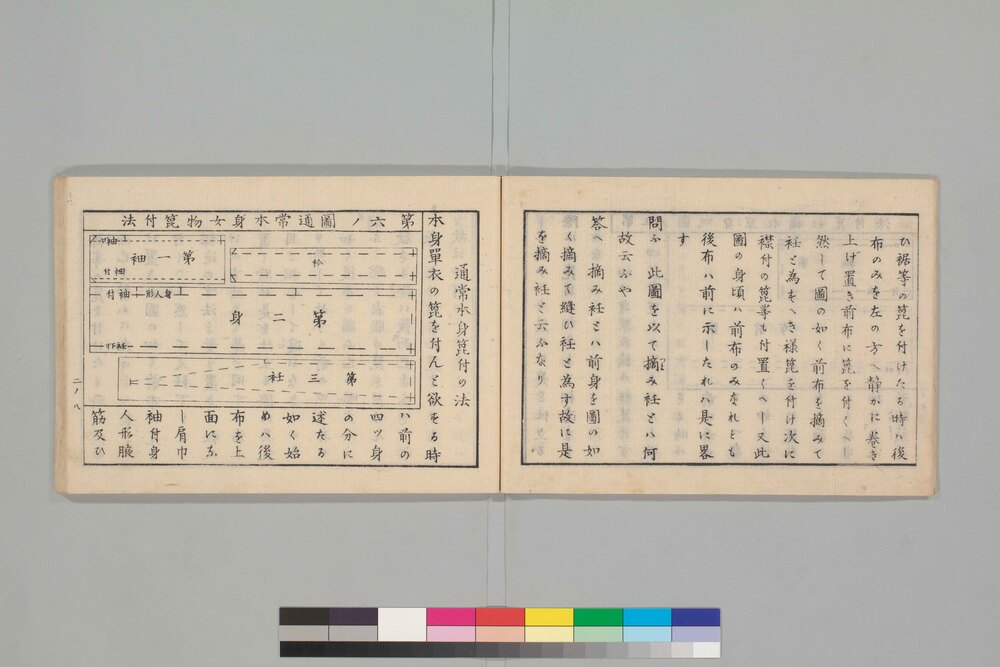 ひ裾等の箆を付けたる時ハ後
布のみを左の方へ静かに巻き
上げ置き前布に箆を付くへ
然して圖の如く前布を摘みて
衽と為すへき様箆を付け次に
襟付の箆等も付置くへ又此
圖の身頃ハ前布のみなれとも
後布ハ前に示したれハ是に畧
す
問ふ此圖を以て摘み衽とハ何
故云ふや
答へ摘み衽とハ前身を圖の如
く摘みて縫ひ衽と為す故に是
を摘み衽と云ふなり
通常本身箆付の法
本身單衣の箆を付んと欲する時
第六ノ圖通常本身女物箆付法
第一袖
袖付
第二身
袖付
身人形
第三衽
ハ前の
四ツ身
の分に
述たる
如く始
めハ後
布を上
面にな
し肩巾
袖付身
人形腋
筋及ひ
二ノ八